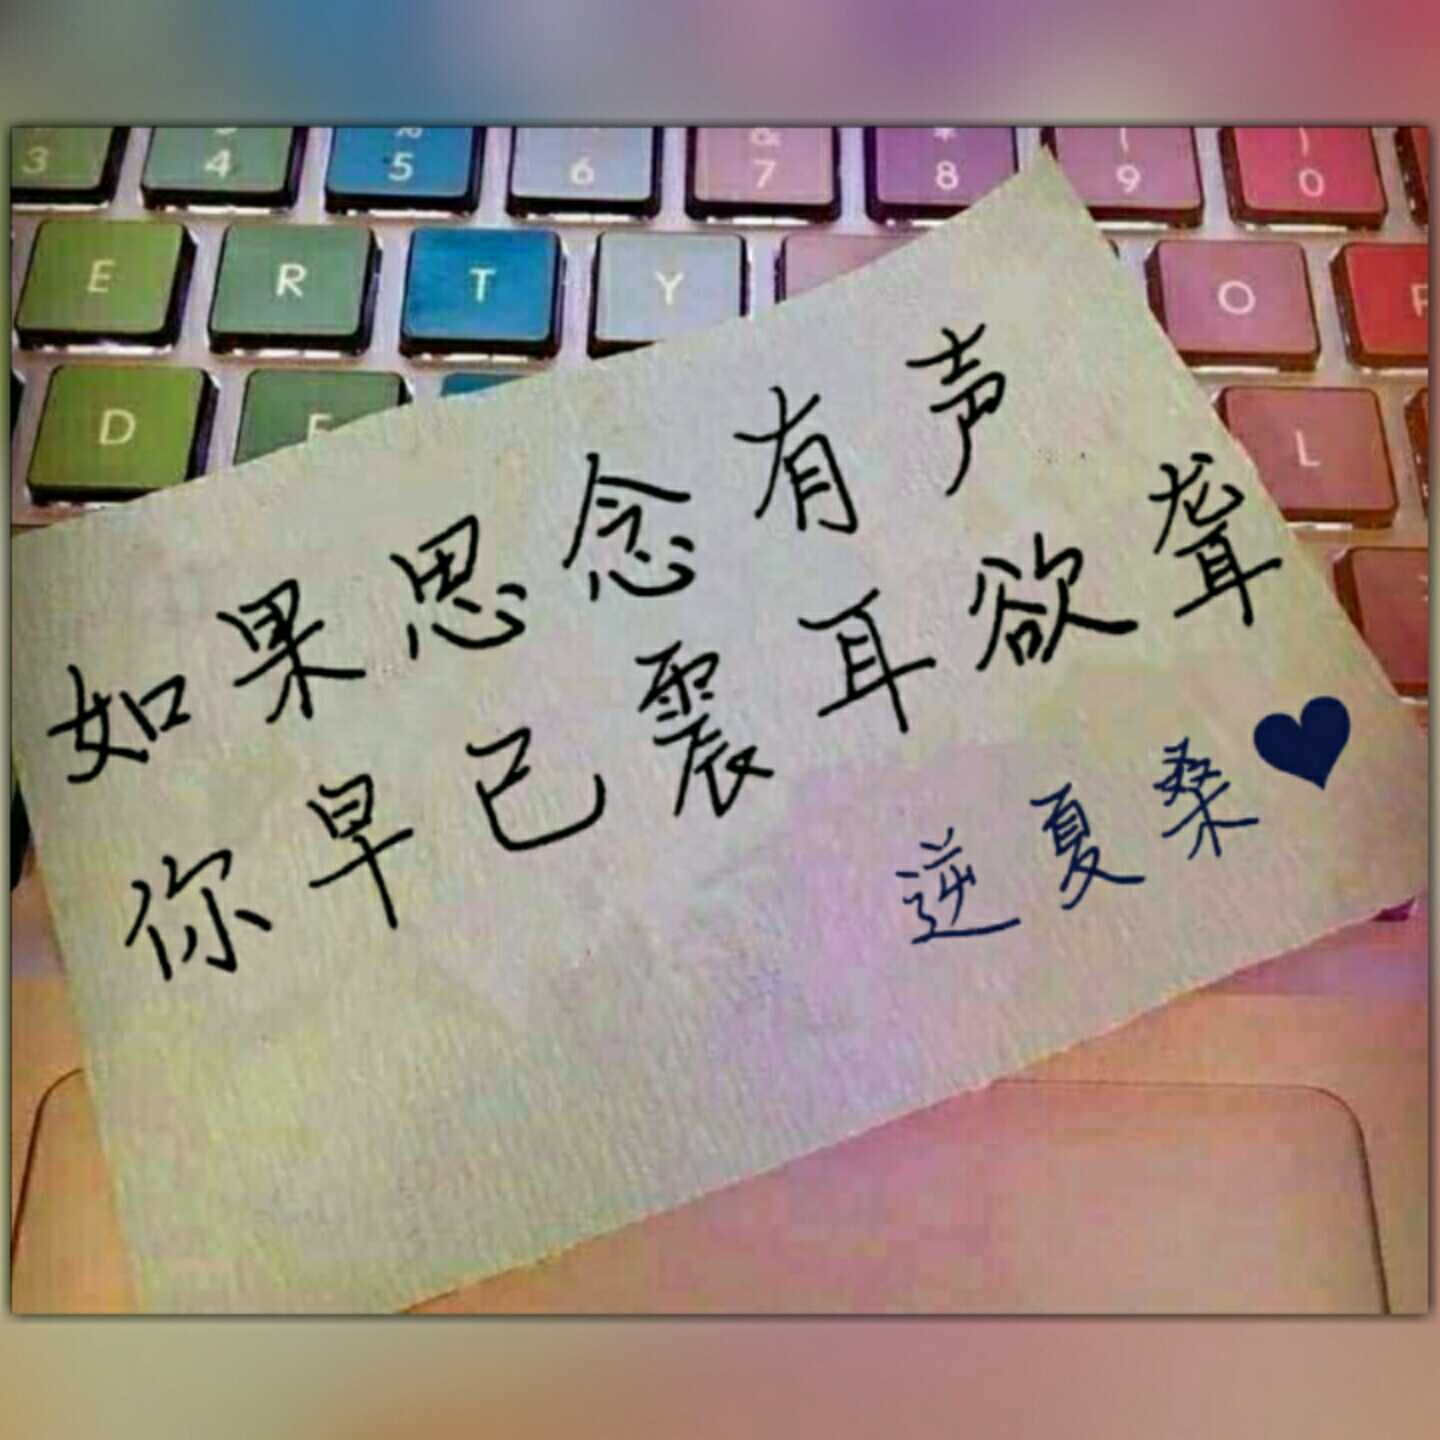 3 4 % 5 ^ 6 & 7 * 8 ( 9 ) 0
E R T Y O P
D F L
如果思念有声
你早已震耳欲聋
逆夏桑